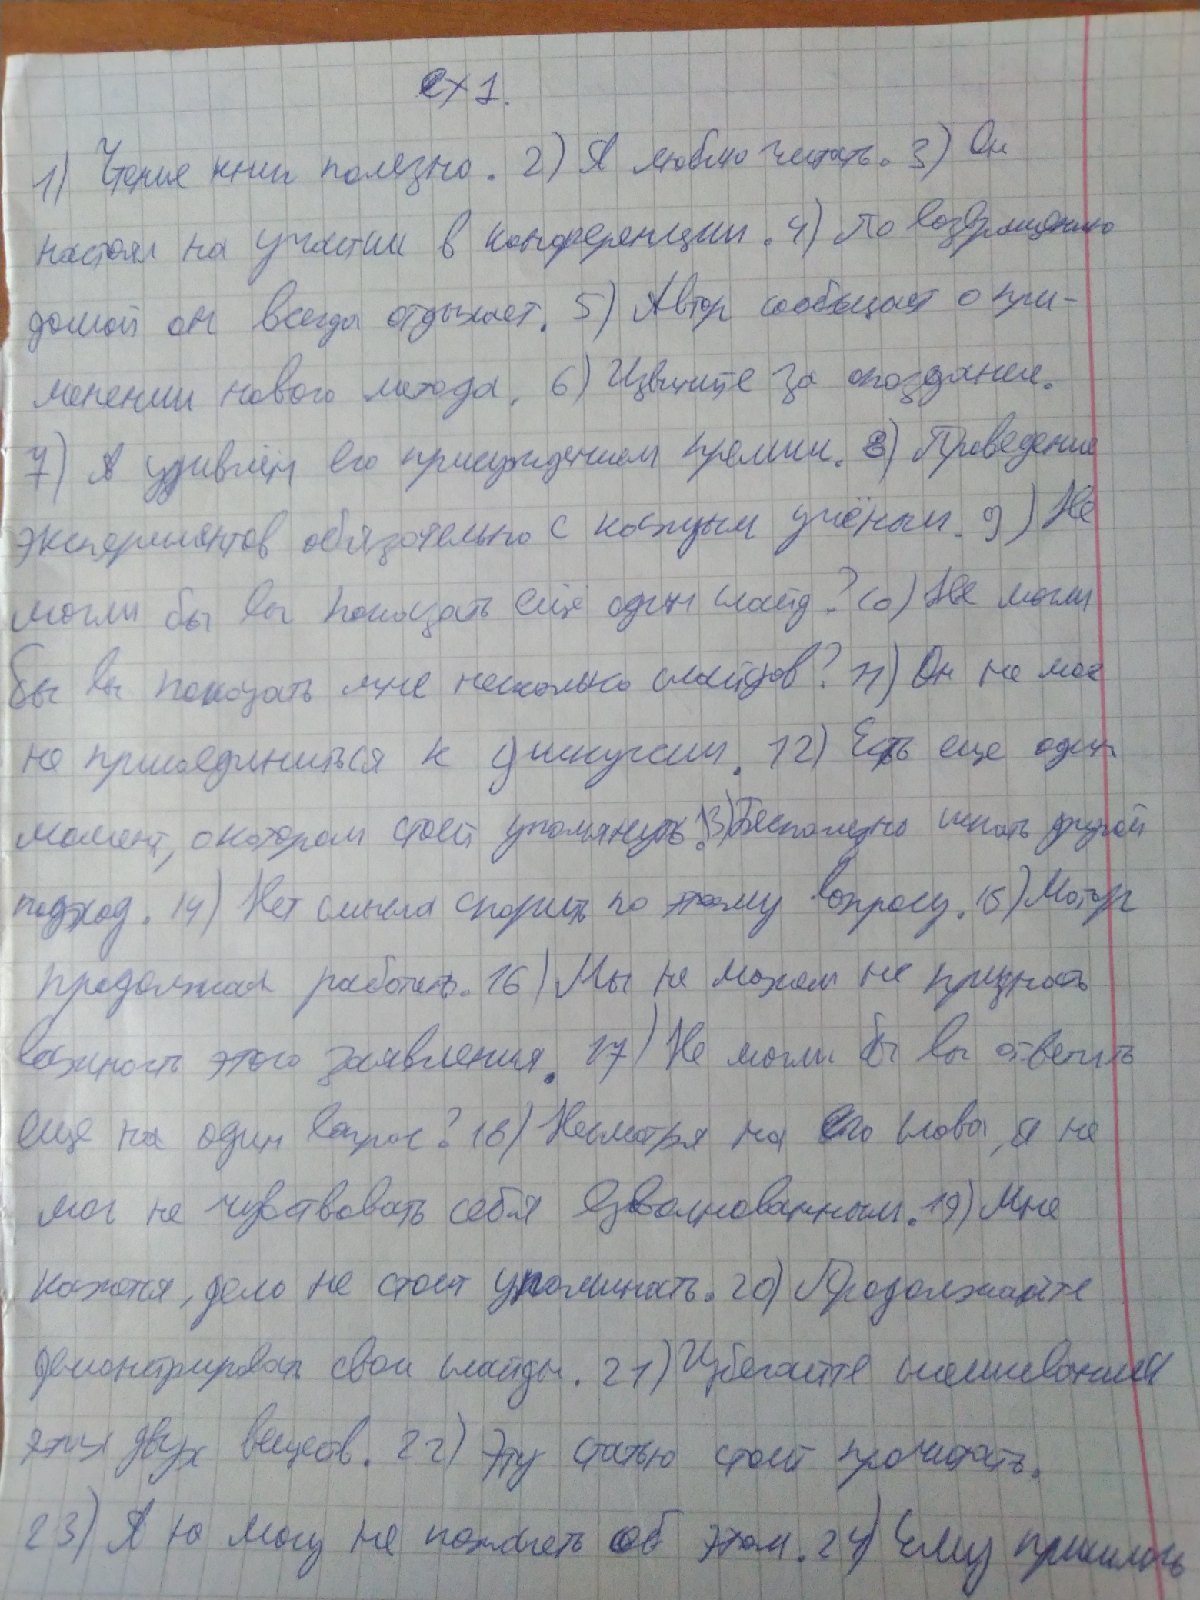 ex 1.
1) Чтение книг полезно. 2) Я люблю читать. 3) Он
настоял на участии в конференции. 4) По возвращению
домой он всегда отдыхает. 5) Автор сообщает о при-
менении нового метода. 6) Извините за опоздание.
7) Я удивлён его присуждением премии. 8) Проведение
экспериментов обязательно с каждым учёным. 9) Не
могли бы вы показать ещё один слайд? 10) Не могли
бы вы показать мне несколько слайдов? 11) Он не мог
не присоединиться к дискуссии. 12) Есть еще один
момент, о котором стоит упомянуть. 13) Бесполезно искать другой
подход. 14) Нет смысла спорить по этому вопросу. 15) Мотор
продолжал работать. 16) Мы не можем не признать
важность этого заявления. 17) Не могли бы вы ответить
еще на один вопрос? 18) Несмотря на его слова, я не
мог не чувствовать себя взволнованным. 19) Мне
кажется, дело не стоит упоминать. 20) Продолжайте
демонстрировать свои слайды. 21) Избегайте смешивания
этих двух веществ. 22) Эту статью стоит прочитать.
23) Я не могу не пожалеть об этом. 24) Ему пришлось